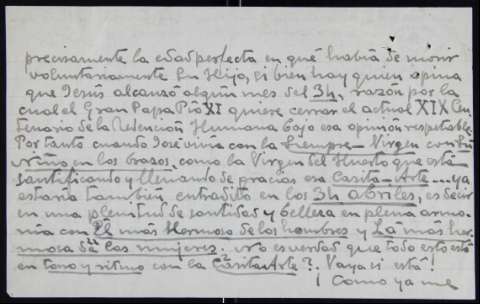 precisamente la edad perfecta en qué había de morir
voluntariamente Su Hijo, si bien hay quien opina
que Jesús alcanzó algún mes del 34, razón por la
cual el Gran Papa Pío XI quiere cerrar el actual XIX Cen-
tenario de la Redención Humana bajo esa opinión respetable.
Por tanto cuando José vivía con la Siempre-Virgen con un
Niño en los brazos, como la Virgen del Huerto que está
santificando y llenando de gracias esa Casita-Arte... ya
estaría también entradito en los 34 abriles, es decir
en una plenitud de santidad y belleza en plena armo-
nía con El más Hermoso de los hombres y La más her-
mosa de las mujeres. ¿No es verdad que todo esto está
en tono y ritmo con la Casita Arte? ¡Vaya si está!
¡Como ya me